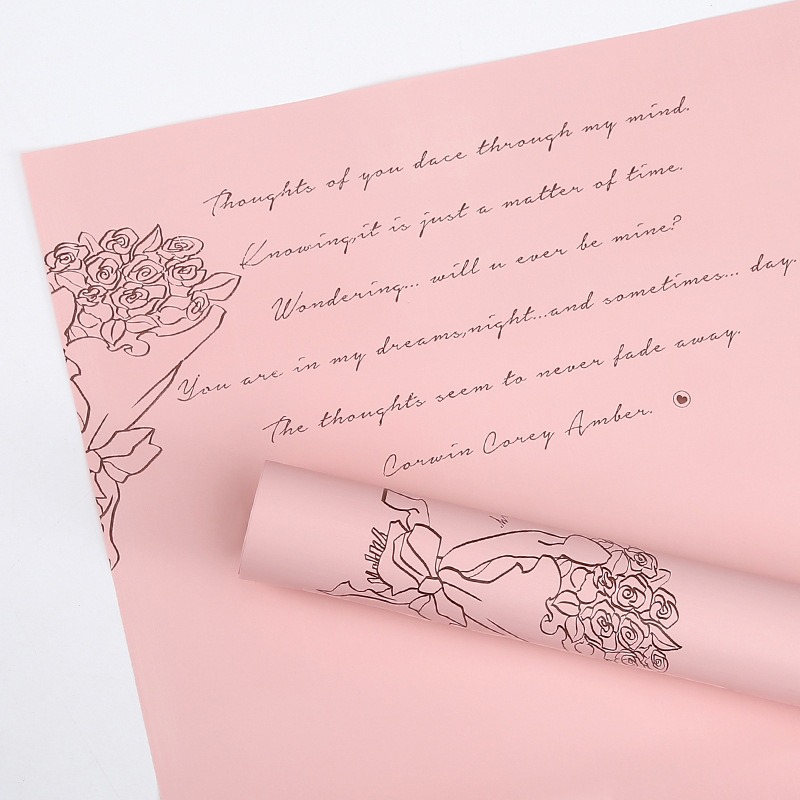 Thoughts of you dace through my mind.
Knowing,it is just a matter of time.
Wondering... will u ever be mine?
You are in my dreams,night...and sometimes... day.
The thoughts seem to never fade away.
Corwin Corey Amber.